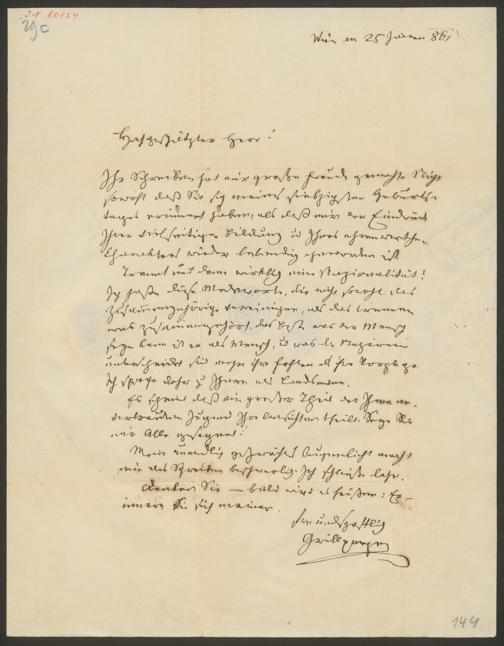 I.N. 80124
29c
Wien am 25 Jänner 861
Hochgeschätzter Herr!
Ihr Schreiben hat mir große Freude gemacht. Nicht
sowohl daß Sie sich meines siebzigsten Geburts-
tages erinnert haben, als daß mir der Eindruck
Ihrer vielseitigen Bildung u Ihres ehrenwerthen
Charakters wieder lebendig geworden ist.
Trennt uns denn wirklich eine Nazionalität?
Ich hasse diese Modeworte, die nicht sowohl das
Zusammengehörige vereinigen, als das trennen
was zusammengehört. das Beste was der Mensch
seyn kann ist er als Mensch, u was die Nazionen
unterscheidet sind mehr ihre Fehler als ihre Vorzüge.
Ich spreche daher zu Ihnen als Landsmann.
Es scheint daß ein großer Theil der Ihnen an-
vertrauten Jugend Ihre Ansichten theilt. Seyen Sie
mir Alle gesegnet!
Mein unendlich geschwächtes Augenlicht macht
mir das Schreiben beschwerlich. Ich schließe daher.
Denken Sie — bald wird es heißen: Er-
innern Sie sich meiner.
freundschaftlich
Grillparzer
144